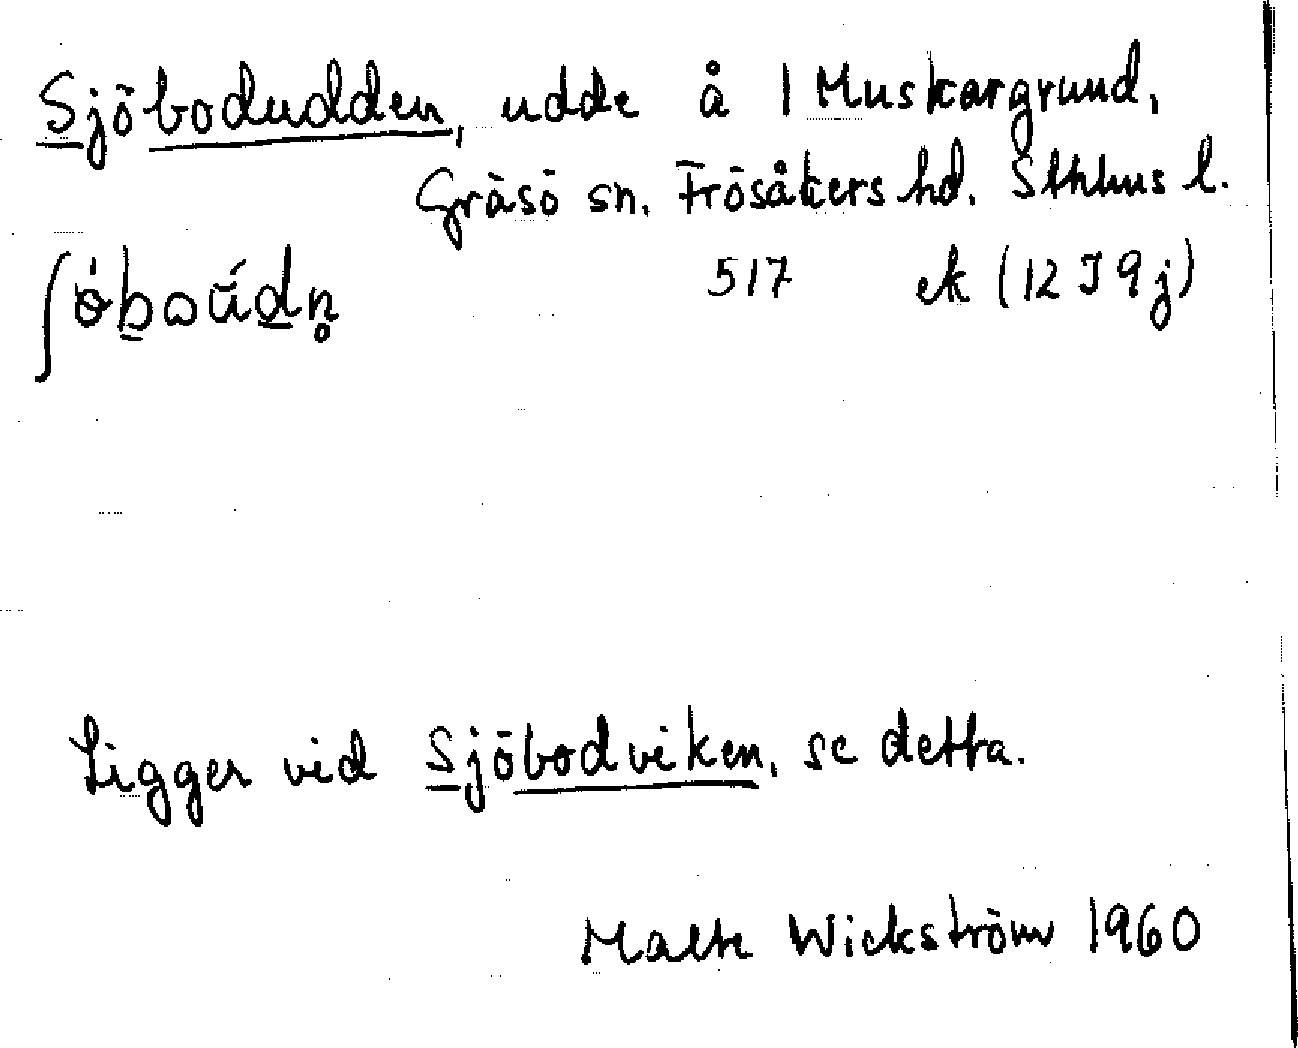 Sjöbodudden, udde å 1 Muskargrund,
Gräsö sn. Frösåkers hd. Sthlms l.
517 ek (12 I 9 j)
Ligger vid Sjöbodviken, se detta.
Malte Wickström 1960